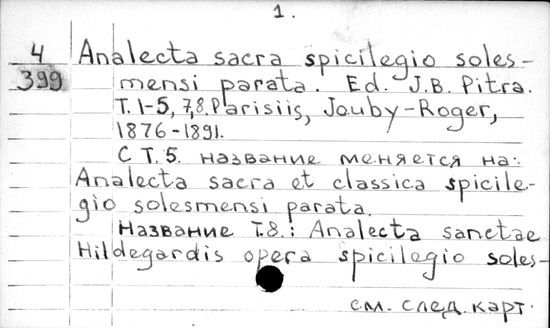 1.
4 Analecta sacra spicilegio soles-
399 mensi parata. Ed. J.B. Pitra.
T. 1-5, 7,8. Parisiis, Jouby-Roger,
1876-1891.
С Т.5. название меняется на:
Analecta sacra et classica spicile-
gio solesmensi parata.
Название т.8.: Analecta sanctae
Hildegardis opera spicilegio soles-
см. след. карт.